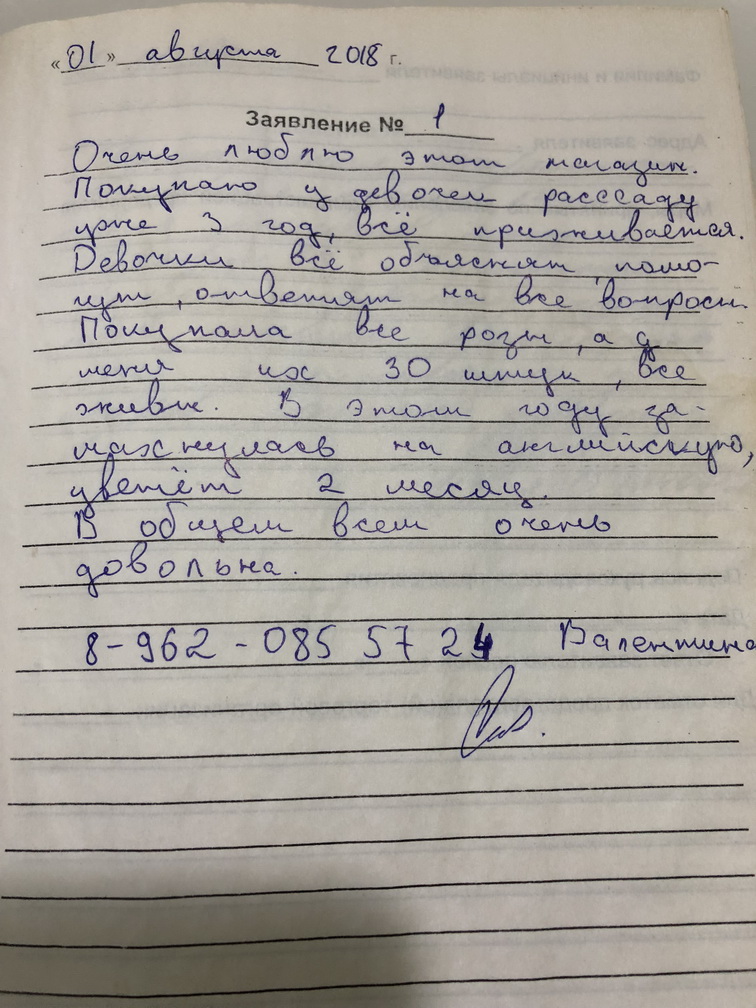 «01» августа 2018 г.
Заявление № 1
Очень люблю этот магазин.
Покупаю у девочек расссаду
уже 3 год, всё приживается.
Девочки всё объяснят, помо-
гут, ответят на все вопросы.
Покупала все розы, а у
меня их 30 штук, все
живы. В этом году за-
махнулась на английскую,
цветёт 2 месяц.
В общем всем очень
довольна.
8-962-085 57 24 Валентина